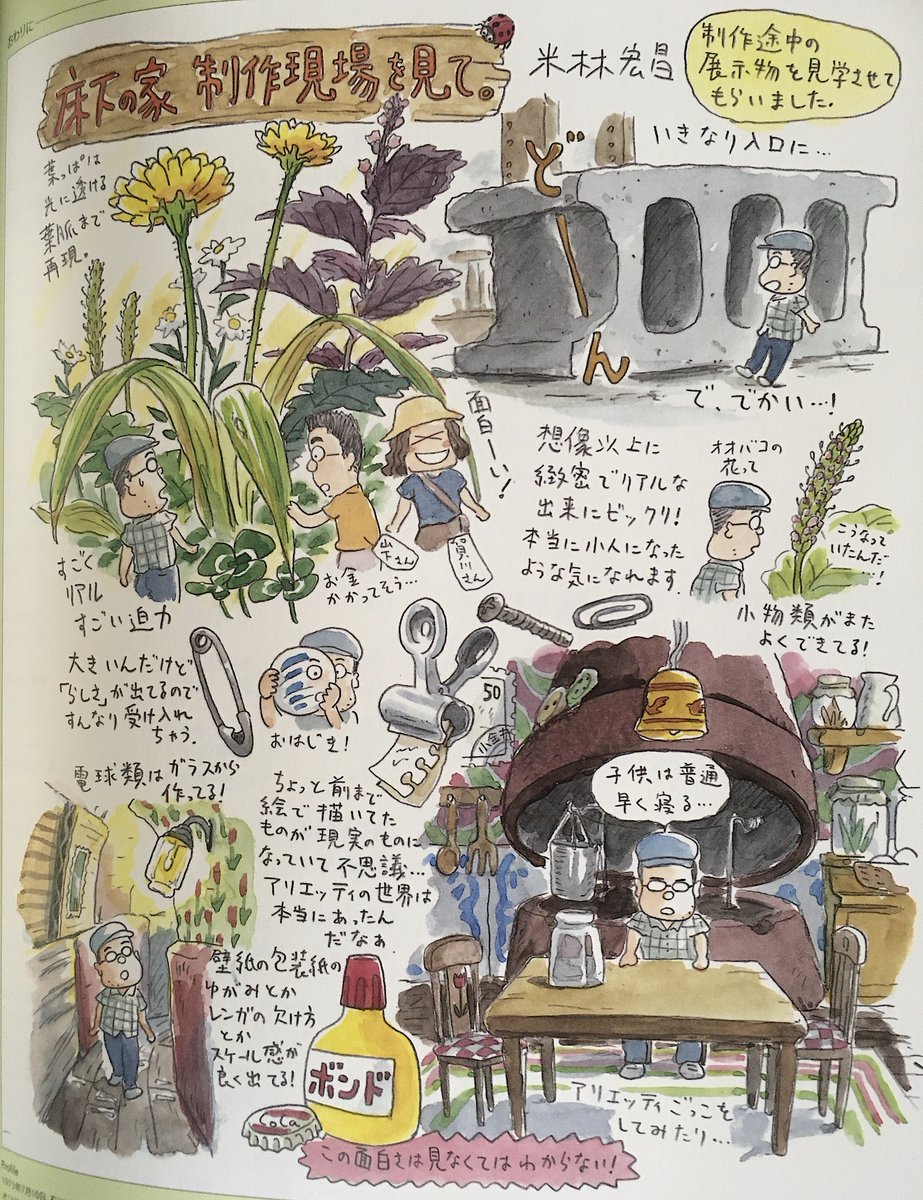 おわりに
床下の家 制作現場を見て。
米林宏昌
制作途中の
展示物を見学させて
もらいました.
いきなり入口に…
どーん
で、でかい…!
葉っぱは
光に透ける
葉脈まで
再現。
すごく
リアル
すごい迫力
お金
かかってそう…
山下さん
面白ーい!
賀川さん
想像以上に
緻密でリアルな
出来にビックリ!
本当に小人になった
ような気になれます.
オオバコの
花って
こうなって
いたんだ
…!
小物類がまた
よくできてる!
大きいんだけど
「らしさ」が出てるので
すんなり受け入れ
ちゃう.
おはじき!
50
小金井
電球類はガラスから
作ってる!
ちょっと前まで
絵で描いてた
ものが現実のものに
なっていて不思議…
アリエッティの世界は
本当にあったん
だなぁ
子供は普通
早く寝る…
壁紙の包装紙の
ゆがみとか
レンガの欠け方
とか
スケール感が
良く出てる!
ボンド
CoLa
アリエッティごっこを
してみたり…
この面白さは見なくてはわからない!
Profile